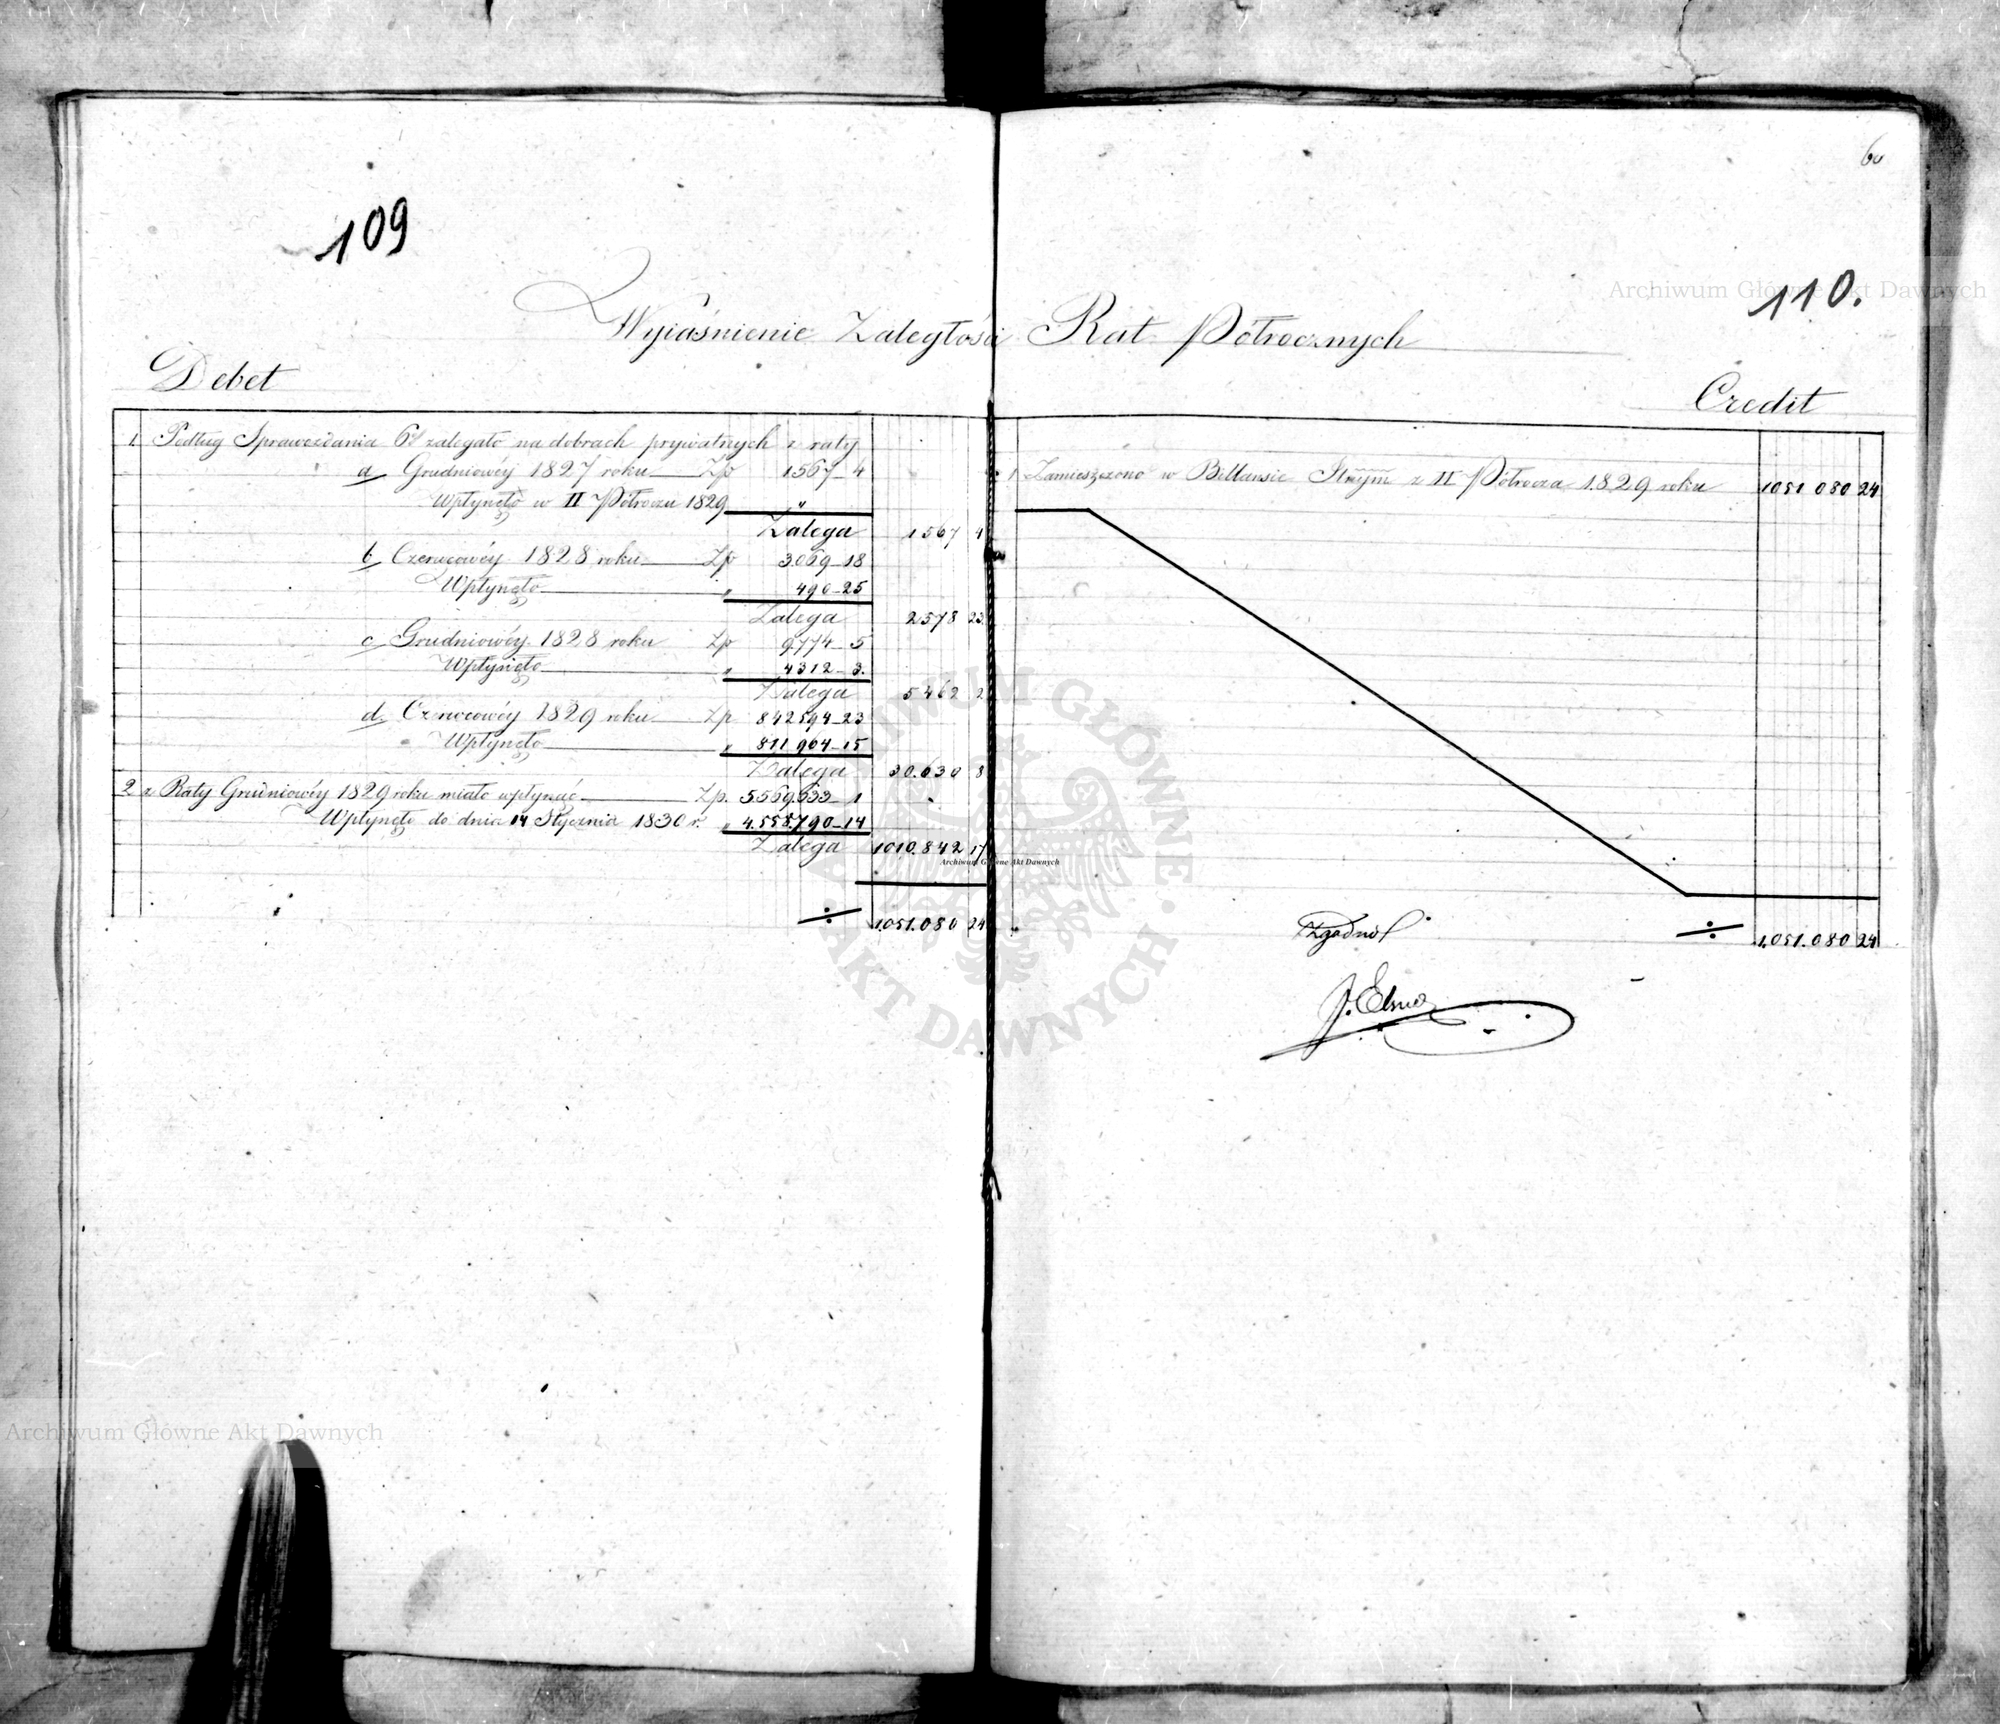 60
109
110.
Wyiaśnienie Zaległości Rat Półrocznych
Debet
Credit
1. Podług Sprawozdania 6go zalegało na dobrach prywatnych z raty
a, Grudniowéy 1827 roku Zp 1567 4
Wpłynęło w II Półroczu 1829 "
Zalega 1567 4
b, Czerwcowéy 1828 roku Zp 3.069 18
Wpłynęło " 490 25
Zalega 2578 23
c, Grudniowéy 1828 roku Zp 9,774 5
Wpłynęło " 4312 3.
Zalega 5462 2
d, Czerwcowéy 1829 roku Zp. 842594 23
Wpłynęło " 811.964 15
Zalega 30.630 8
2 z Raty Grudniowéy 1829 roku miało wpłynąć Zp. 5.569.633 1
Wpłynęło do dnia 14 Stycznia 1830 r. " 4.558.790 14
Zalega 1010.842 17
÷ 1.051.080 24
1 Zamieszczono w Billansie z II Półrocza 1829 roku 1051 080 24
÷ 1.051.080 24
Zgodno
Archiwum Główne Akt Dawnych
Archiwum Główne Akt Dawnych
Archiwum Główne Akt Dawnych
ARCHIWUM GŁÓWNE
AKT DAWNYCH